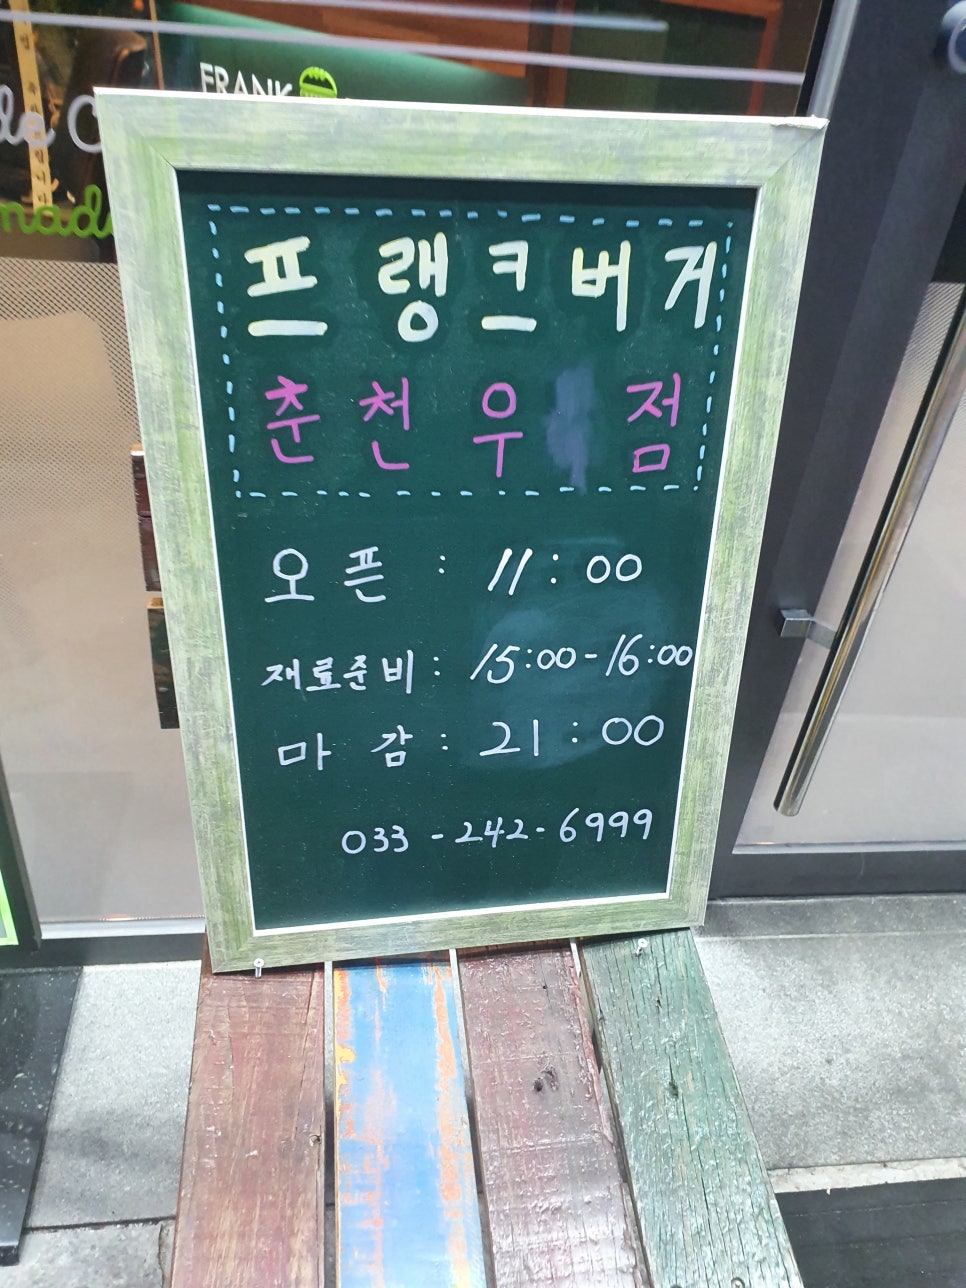 FRANK
프랭크버거
춘천우 점
오픈 : 11:00
재료준비 : 15:00-16:00
마감 : 21:00
033-242-6999